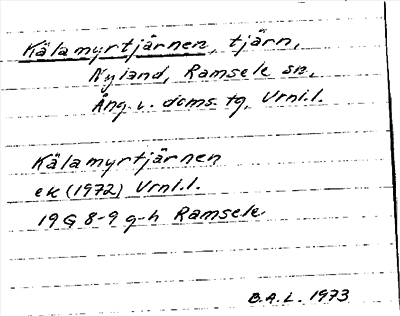 Kälamyrtjärnen, tjärn,
Nyland, Ramsele sn,
Ång. v. doms. tg, Vrnl.l.
Kälamyrtjärnen
ek (1972) Vrnl.l.
19G 8-9 g-h Ramsele
B.A.L. 1973